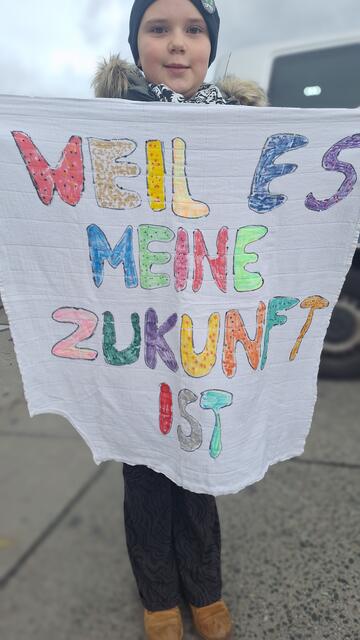 WEIL ES
MEINE
ZUKUNFT
IST